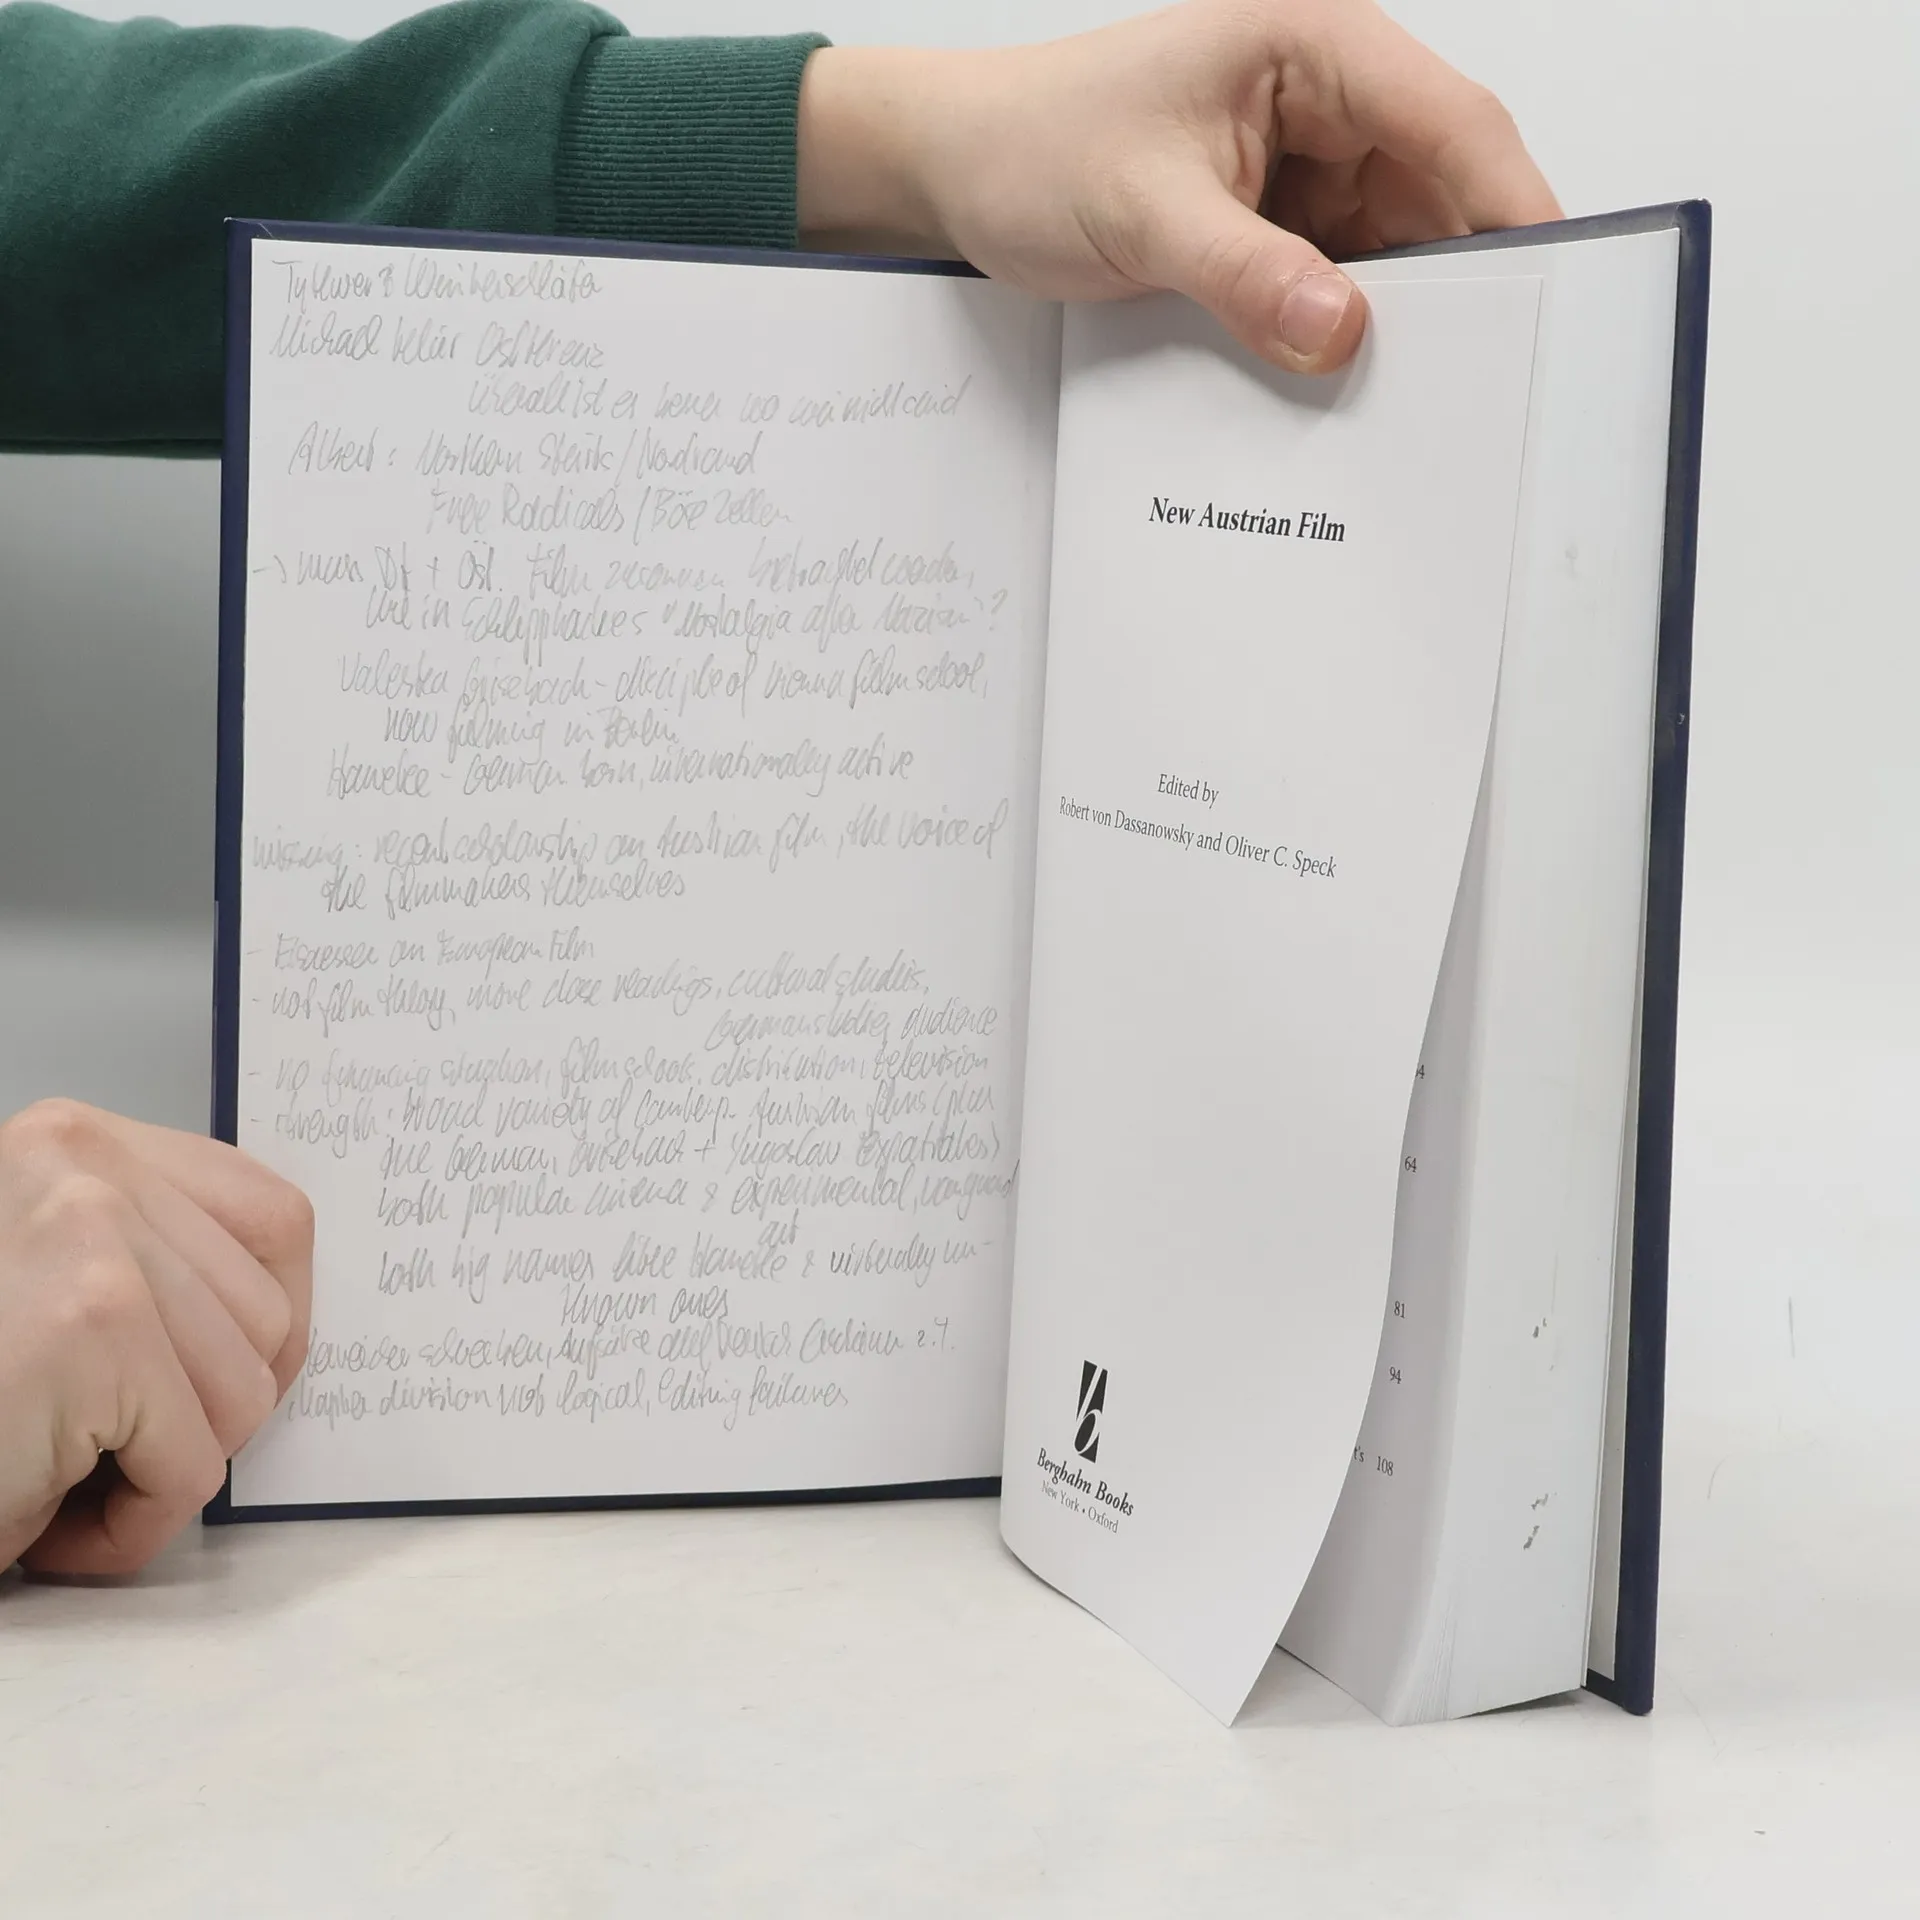 Tykwer's Winterschläfer
Michael
überall ist es wo wir nicht sind
Albert: Northern Skirts / Nordrand
Free Radicals / Böse Zellen
→ muss Dt + Öst. Film zusammen betrachtet werden,
wie in "Nostalgia after Nazism"?
Valeska Grisebach - disciple of Vienna film school,
now filming in Berlin
Haneke - German born, internationally active
missing: recent scholarship on Austrian film, the voice of
the filmmakers themselves
- Elsaesser on European Film
- not film theory, more close readings, cultural studies,
German studies audience
- no financing situation, film schools, distribution, television
- strength: broad variety of contemp. Austrian films (plus
one German, Grisebach + Yugoslav expatriates)
both popular cinema & experimental, vanguard
art
both big names like Haneke & virtually un-
known ones
Aufsätze z.T.
chapter division not logical, editing failures
New Austrian Film
Edited by
Robert von Dassanowsky and Oliver C. Speck
Berghahn Books
New York • Oxford
64
81
94
t's 108